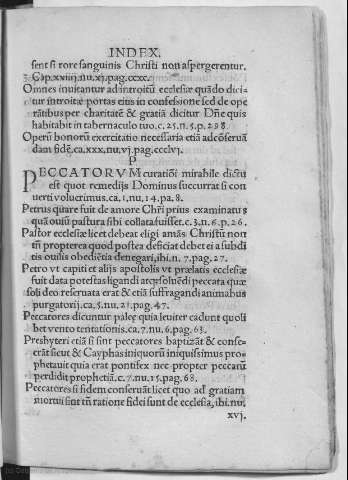 INDEX.
sent si rore sanguinis Christi non aspergerentur.
Cap.xxiiij.nu.xj.pag.ccxc.
Omnes inuitantur ad introitũ ecclesiæ quãdo dici⸗
tur introitæ portas eius in confessione sed de ope
rãtibus per charitatẽ & gratiã dicitur Dñe quis
habitabit in tabernaculo tuo.c.25.n.5.p.298.
Operũ bonorũ exercitatio necessaria etiã ad cõseruã
dam fidẽ.ca.xxx.nu.vj.pag.ccclvj.
P
PECCATORVM curatiõi mirabile dictu
est quot remedijs Dominus succurrat si con
uerti volucrimus.ca.1.nu,14.pa.8.
Petrus quare fuit de amore Chři prius examinatus
quã ouiũ pastura sibi collata fuisset.c.3.n.6.p.26.
Pastor ecclesiæ licet debeat eligi amãs Christũ non
tñ propterea quod postea deficiat debet ei a subdi
tis ouilis obedictia denegari,ibi.n.7.pag.27.
Petro vt capiti et alijs apostolis vt prælatis ecclesiæ
fuit data potestas ligandi atq; soluẽdi peccata quæ
soli deo reseruata erat & etiã suffragandi animabus
purgatorij.ca.5.nu.21.pag.47.
Peccatores dicuntur paleę quia leuiter cadunt quoli
bet vento tentationis.ca.7.nu.6.pag.63.
Presbyteri etiã si sint peccatores baptizãt & conse⸗
crãt sicut & Cayphas iniquorũ iniquissimus pro⸗
phetauit quia erat pontifex nec propter peccatũ
perdidit prophetiã.c.7.nu.15.pag.68.
Peccatores si fidem conseruãt licet quo ad gratiam
mortui sint tñ ratione fidei sunt de ecclesia, ibi.nu.
xvj.